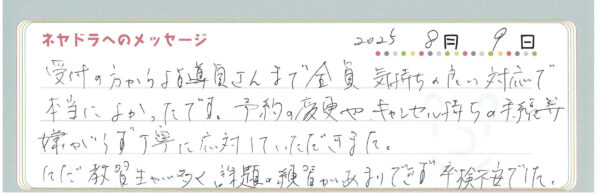 ネヤドラへのメッセージ
2025 8月 9日
受付の方から指導員さんまで全員 気持ちの良い対応で
本当によかったです。予約の変更や、キャンセル待ちの手続等
嫌がらず丁寧に応対していただきました。
ただ教習生が多く課題の練習があまりできず卒検不安でした。